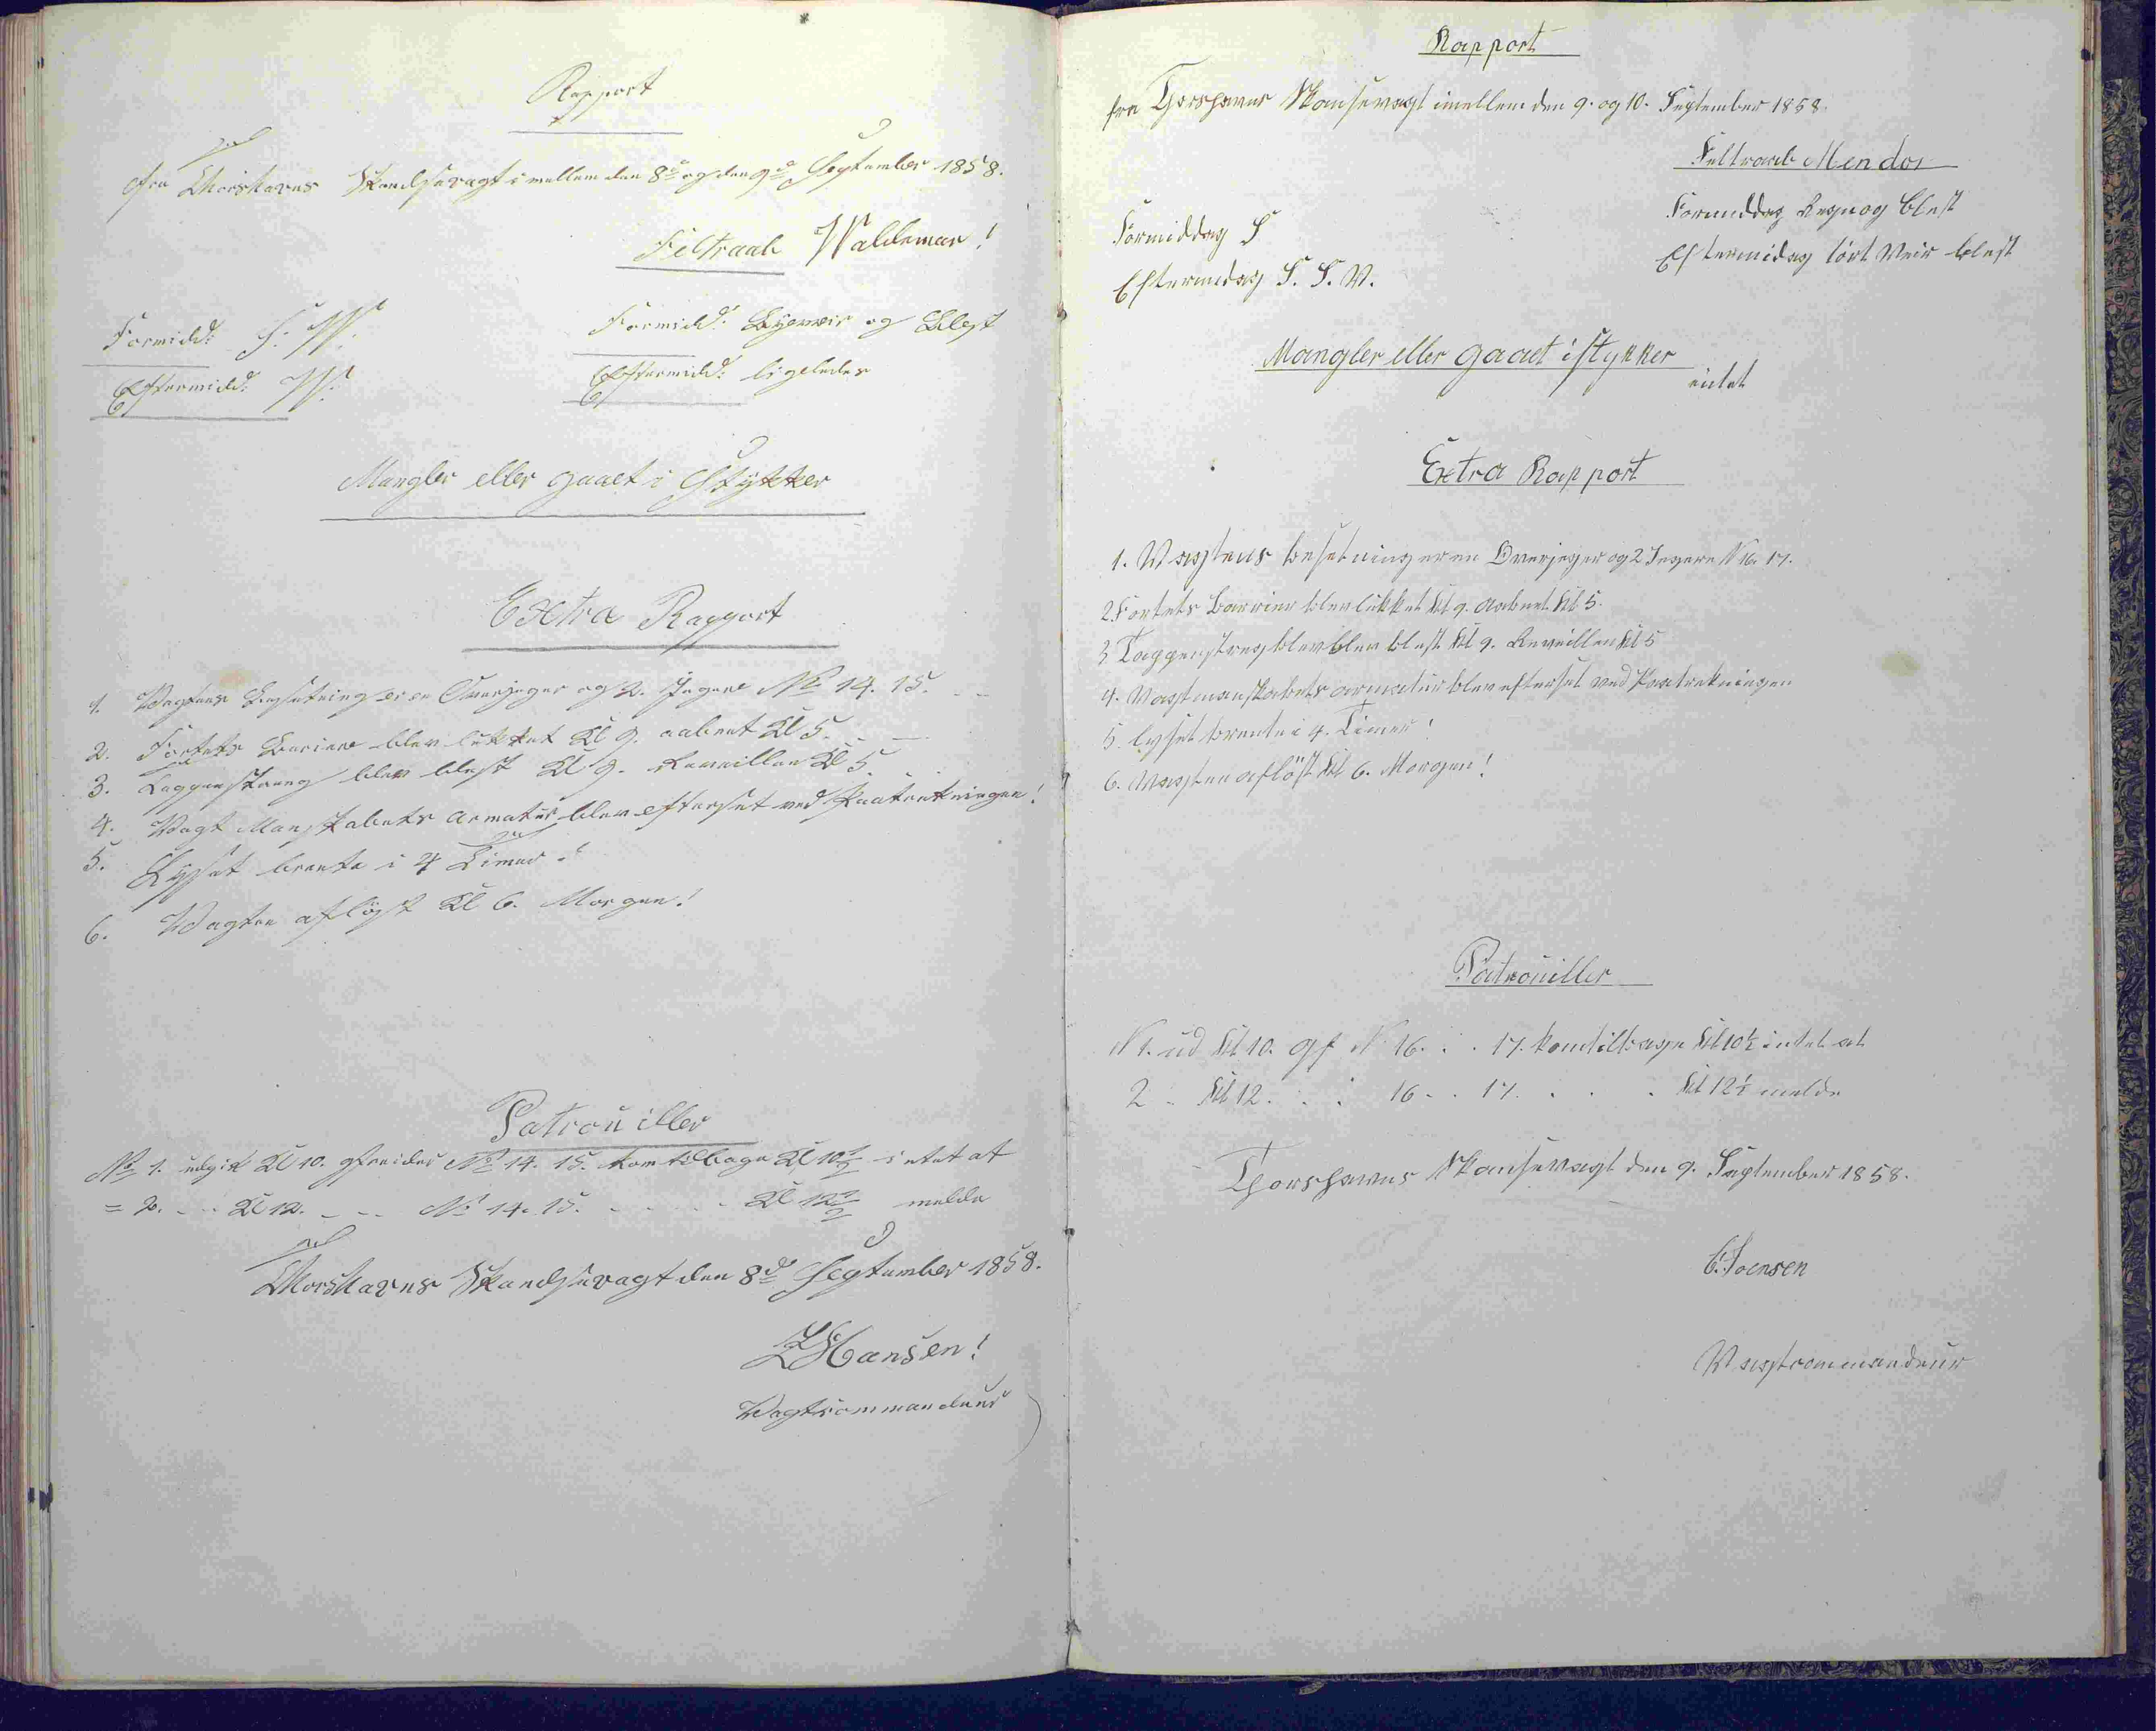 Rapport
fra Thorshavns Skandsevagt imellem den 8de og den 9de September 1858.
Feltraab Waldemar!
Formidd: S. W. Formidd: Bygeveir og Blest
Eftermidd: W. Eftermidd: ligeledes
Mangler eller gaaet i Stykker
Extra Rapport
1. Vagtens Besætning er en Overjeger og 2. Jegere No 14. 15.
2. Fortets Bariere blev lukket Kl 9. aabent Kl 5.
3. Tappenstreng blev blest Kl 9. Reveillen Kl 5.
4. Vagt Manskabets Armatúr blev efterset ved Paatrekningen!
5. Lyset brente i 4 Timer!
6. Vagten afløst Kl 6. Morgen!
Patroúiller
No 1. udgik Kl 10. gfreider No 14. 15. kom tilbage Kl 10½ intet at
= 2. - - Kl 12. - - - No 14. 15. - - - - - Kl 12½ melde
Thorshavns Skandsevagt den 8de September 1858.
Hansen!
Vagtcommandeur
Rapport
fra Thorshavns Skansevagt imellem den 9. og 10. September 1858.
Feltraab Mendos
Formiddag S Formiddag Regn og Blest
Eftermidag S. S. V. Eftermidag tört Veir blest
Mangler eller gaaet istykker
intet
Extra Rapport
1. Vagtens besetning er en Overjeger og 2 Jegere N 16. 17.
2. Fortets Barrier blev lúkket kl 9. aabnet kl 5.
3 Tappenstreg blev blev blest kl 9. Reveillen kl 5
4. Vagtmanskabets armatúr blev efterset ved Paatrekningen
5. lyset brente i 4. Timer!
6. Vagten aflöst kl 6. Morgen!
Patroúiller
N 1. ud kl 10. gf N 16. . . 17. kom tilbage kl 10½ intet at
2 - kl 12. . . . 16 - . 17. . . . kl 12½ melde
Thorshavns Skansevagt den 9. September 1858.
Joensen
Vagtcommandeur